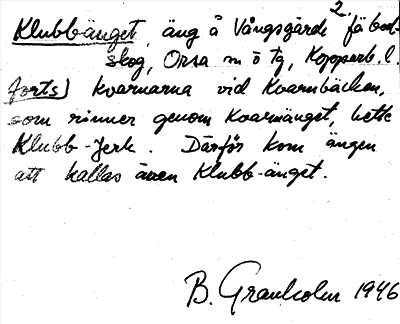 2
Klubb-änget, äng å Vångsgärde fäbod-
skog, Orsa m ö tg, Kopparb. l.
forts) kvarnarna vid Kvarnbäcken,
som rinner genom Kvarnänget, hette
Klubb-Jerk. Därför kom ängen
att kallas även Klubb-änget.
B. Granholm 1946